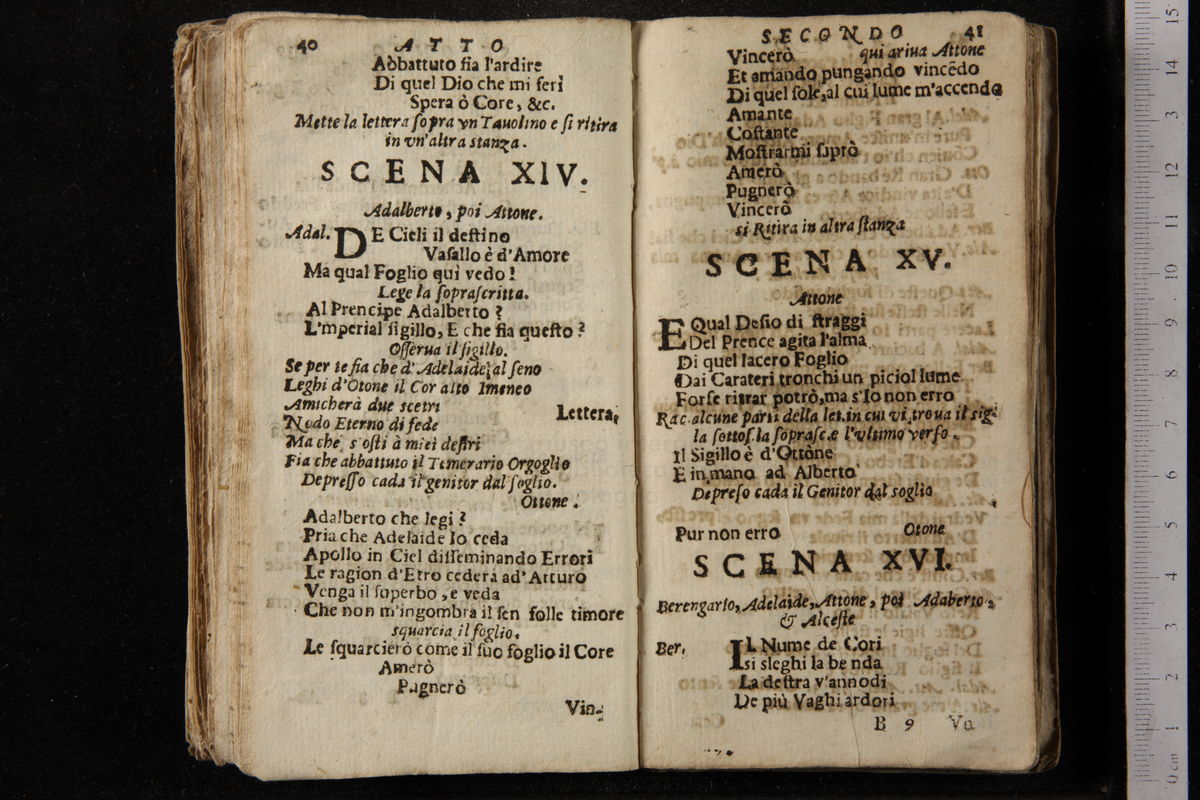 40 ATTO
Abbattuto fia l'ardire
Di quel Dio che mi ferì
Spera ò Core, &c.
Mette la lettera sopra vn Tauolino e si ritira
in vn'altra stanza.
SCENA XIV.
Adalberto, poi Attone.
Adal. DE Cieli il destino
Vasallo è d'Amore
Ma qual Foglio quì vedo!
Lege la soprascritta.
Al Prencipe Adalberto?
L'mperial sigillo, E che fia questo?
Osserua il sigillo.
Se per te fia che d'Adelaide al seno
Leghi d'Otone il Cor alto Imeneo
Amicherà due scetri Lettera,
Nodo Eterno di fede
Ma che s'osti à miei desiri
Fia che abbattuto il Temerario Orgoglio
Depresso cada il genitor dal soglio.
Ottone.
Adalberto che legi?
Pria che Adelaide Io ceda
Apollo in Ciel disseminando Errori
Le ragion d'Etro cederà ad' Arturo
Venga il superbo, e veda
Che non m'ingombra il sen folle timore
squarcia il foglio.
Le squarcierò come il suo foglio il Core
Amerò
Pugnerò
Vin-
SECONDO 41
Vincerò qui ariua Attone
Et amando pungando vincēdo
Di quel sole, al cui lume m'accendo
Amante
Costante
Mostrarmi saprò
Amerò
Pugnerò
Vincerò
si Ritira in altra stanza
SCENA XV.
Attone
EQual Desio di straggi
Del Prence agita l'alma
Di quel lacero Foglio
Dai Carateri tronchi un piciol lume
Forse ritrar potrò, ma s'Io non erro
Rac. alcune parti della let. in cui vi troua il sigi
la sottos. la soprasc. e l'vltimo verso.
Il Sigillo è d'Ottone
E in mano ad Alberto
Depreso cada il Genitor dal soglio
Pur non erro Otone
SCENA XVI.
Berengario, Adelaide, Attone, poi Adaberto,
& Alceste
Ber. IL Nume de Cori
si sleghi la benda
La destra v'annodi
De più Vaghi ardori
B 9 Vn